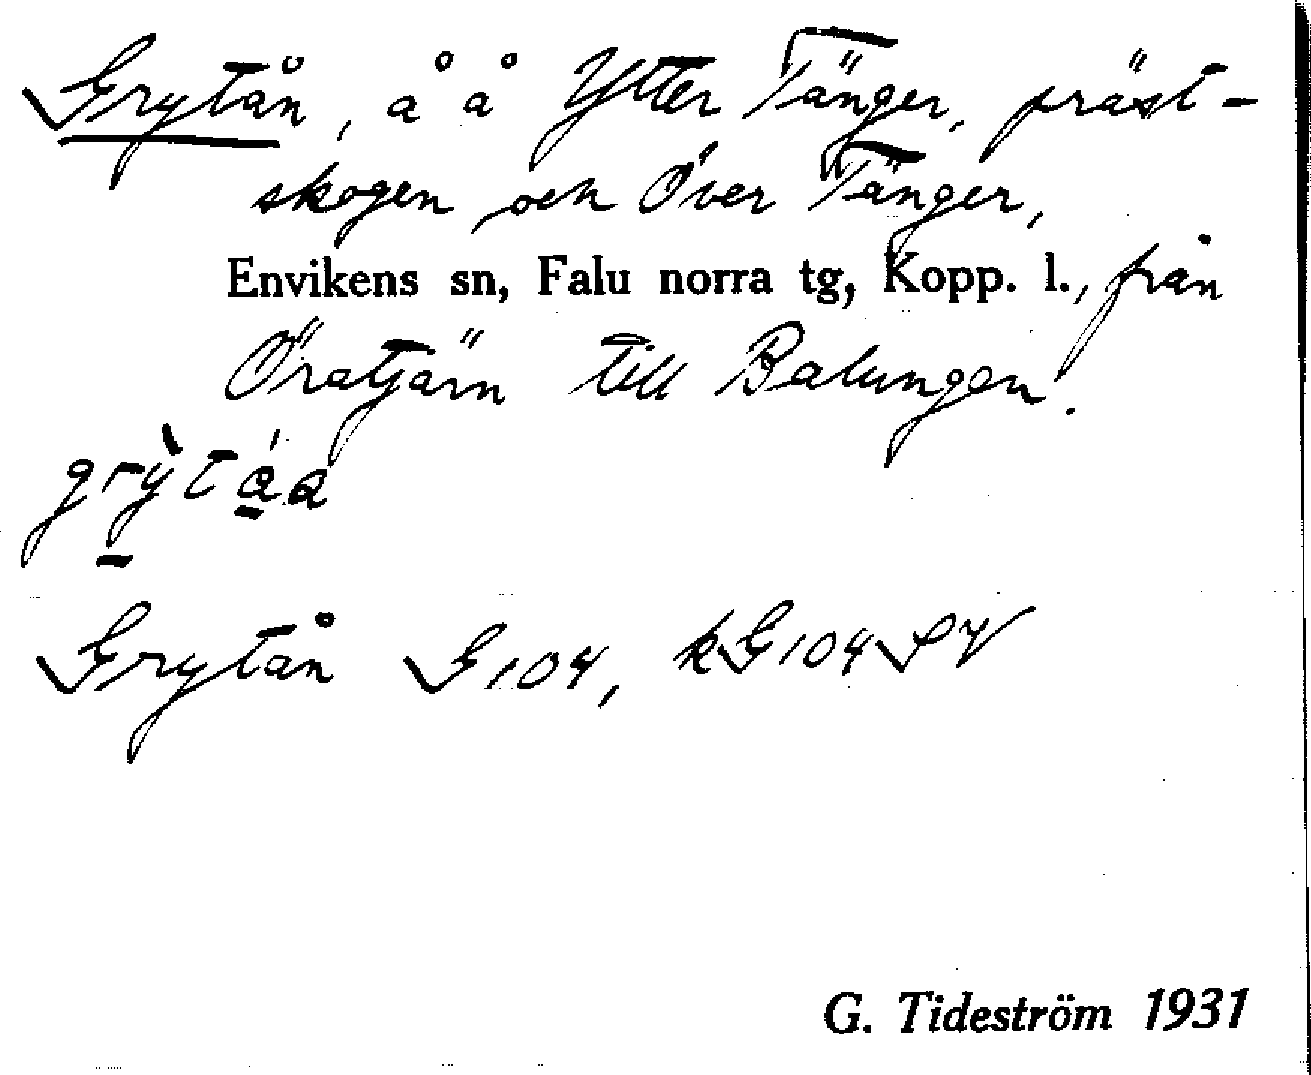 Grytån, å å Ytter Tänger, präst-
skogen och Över Tänger,
Envikens sn, Falu norra tg, Kopp. l., från
Öratjärn till Balungen.
Grytån G104, kG104SV
G. Tideström 1931